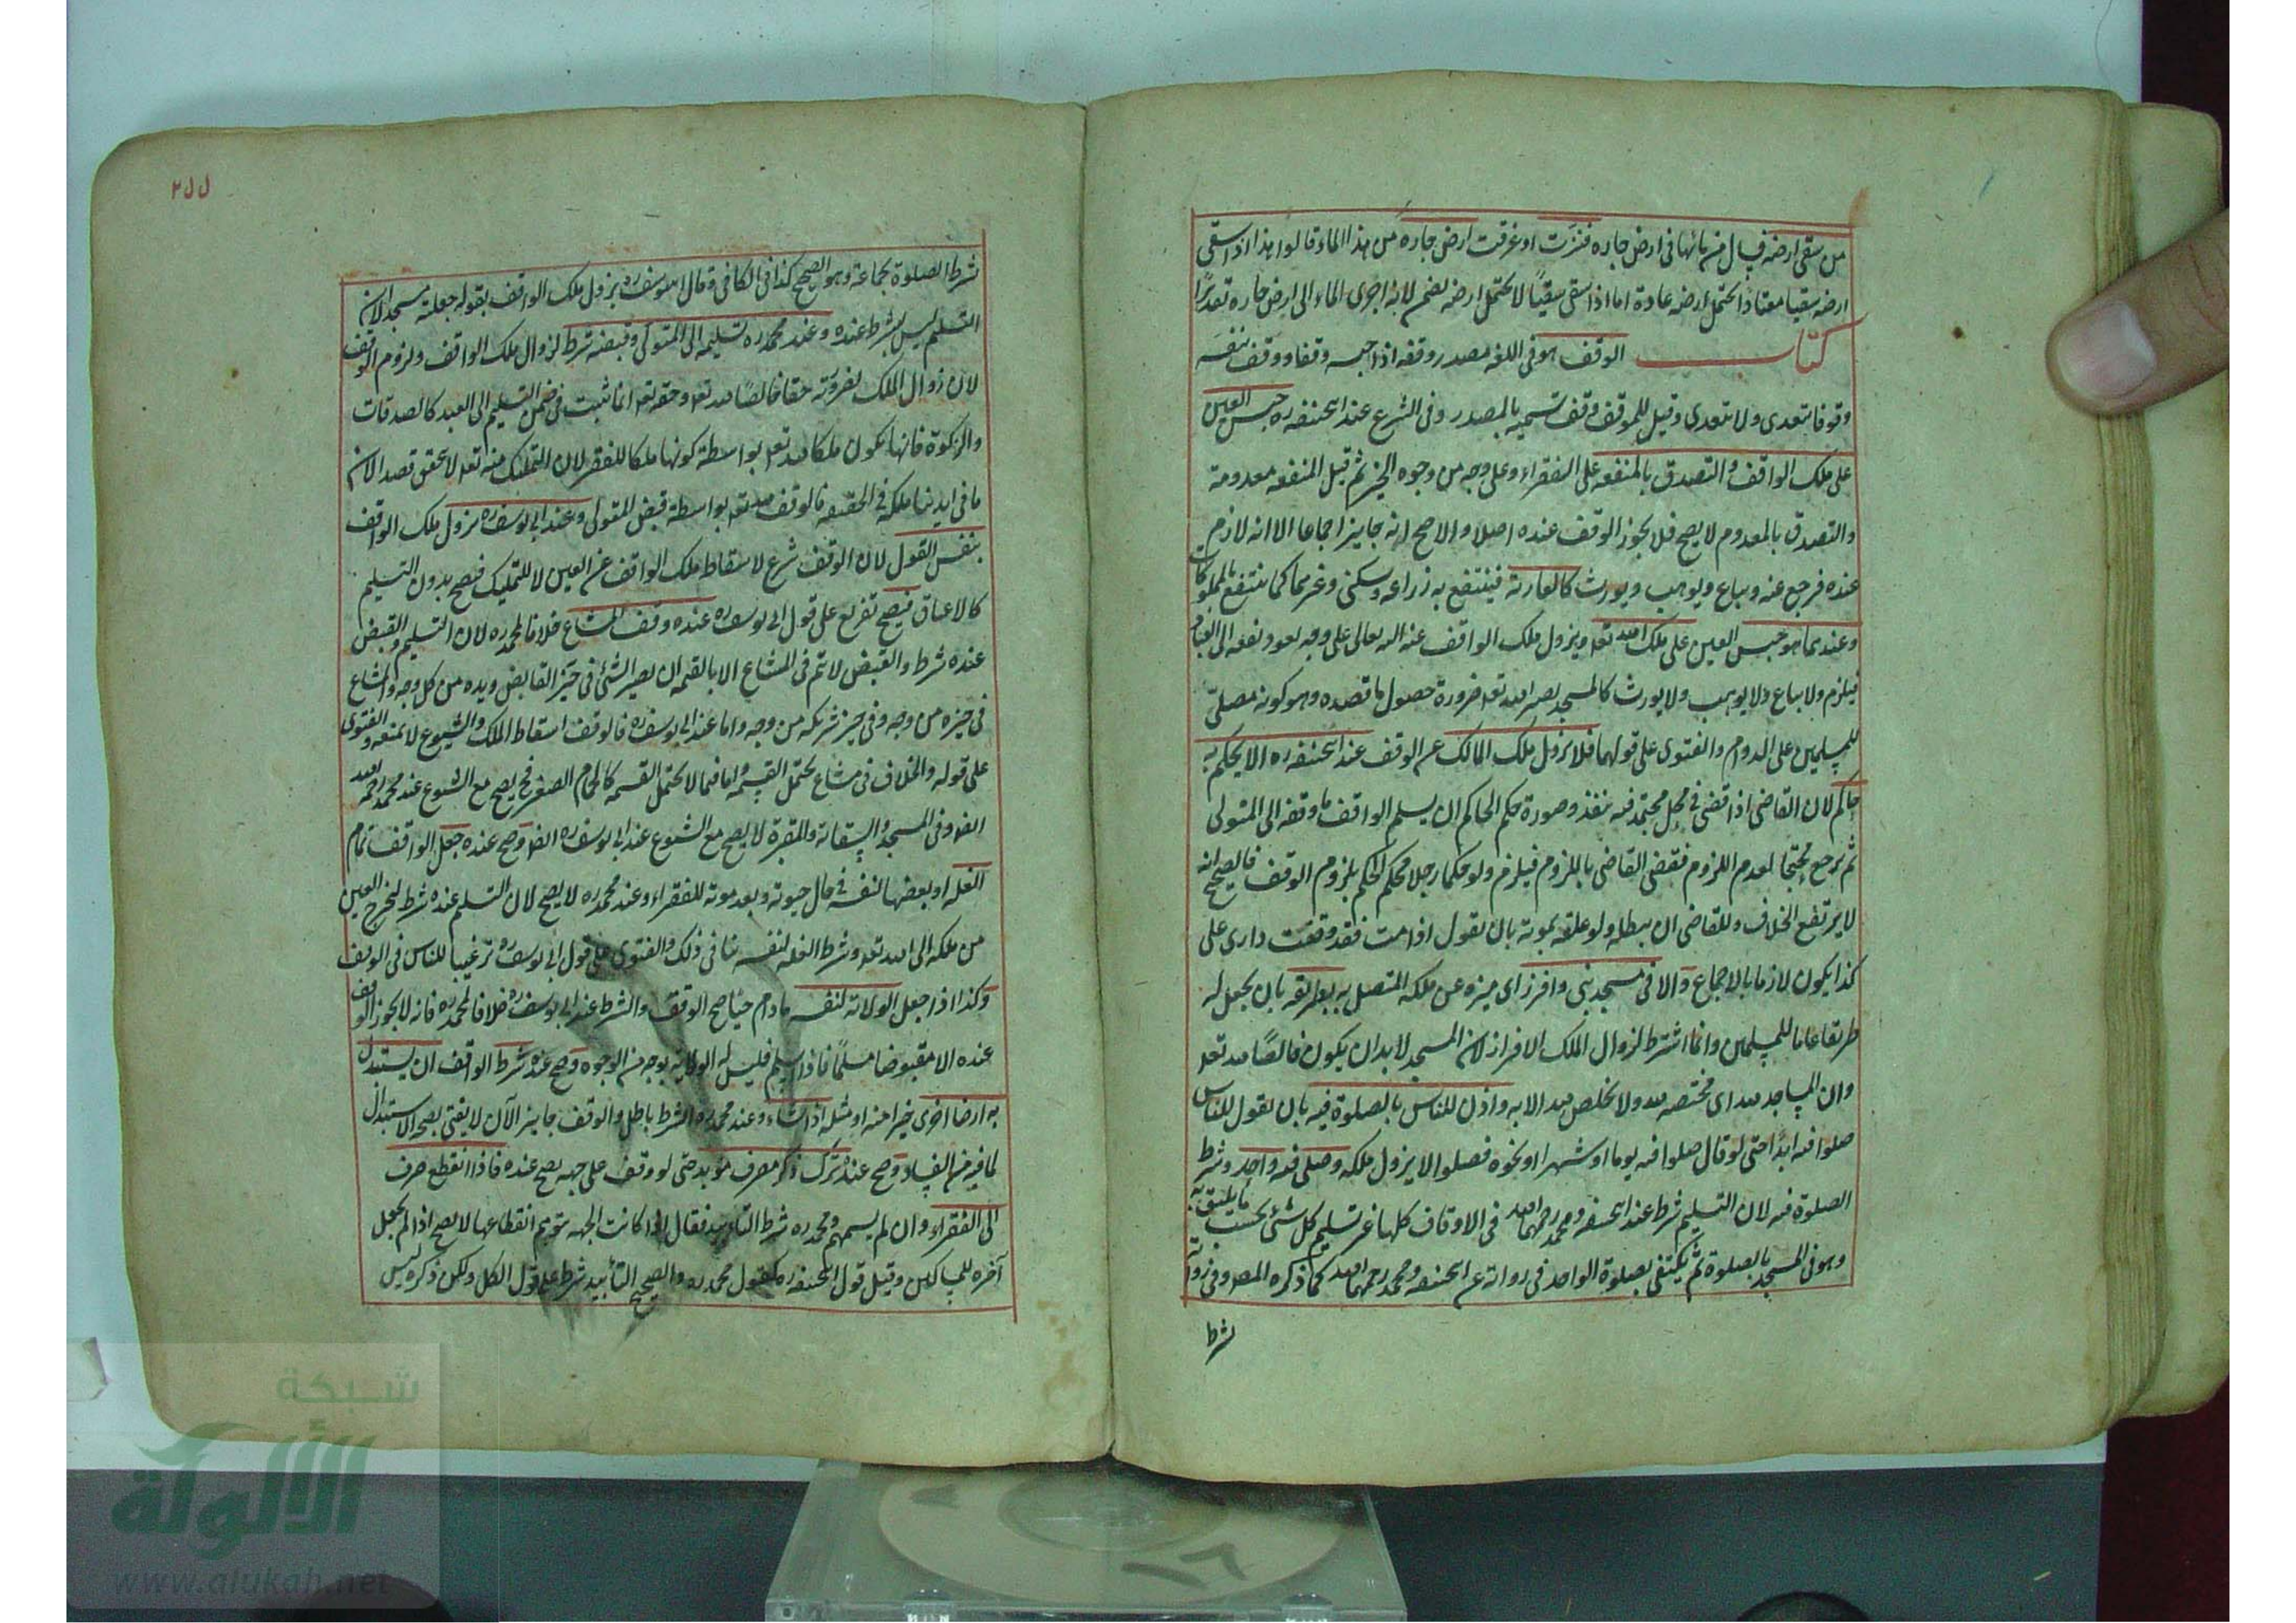 من سقى ارضه فسال من مائها فى ارض جاره فنزت او غرقت ارض جاره من هذا الماء قالوا هذا اذا سقى
ارضه سقيا معتادا تحتمل ارضه عادة اما اذا سقى سقيًا لا تحتمل ارضه يضمن لانه اجرى الماء الى ارض جاره تقديرًا
كتاب الوقف هو فى اللغة مصدر وقفه اذا حبسه وقفا ووقف بنفسه
وقوفا يتعدى ولا يتعدى وقيل للموقوف وقف تسمية بالمصدر وفى الشرع عند ابى حنيفه ره حبس العين
على ملك الواقف والتصدق بالمنفعه على الفقراء وعلى وجه من وجوه الخير ثم قيل المنفعه معدومة
والتصدق بالمعدوم لا يصح فلا يجوز الوقف عنده اصلا والاصح انه جايز اجماعا الا انه لازم
عنده فرجع عنه ويباع ويوهب ويورث كالعارية فينتفع به زراعه وسكنى وغيرهما كما ينتفع بالمملوكات
وعندهما هو حبس العين على ملك الله تعا ويزول ملك الواقف عنه الى الله تعالى على وجه يعود نفعه الى العباد
فيلزم ولا يباع ولا يوهب ولا يورث كالمسجد يصير لله تعا ضرورة حصول ما قصده وهو كونه مصلى
للمسلمين على الدوام والفتوى على قولهما فلا يزول ملك المالك عن الوقف عند ابى حنيفه ره الا بحكم به
حاكم لان القاضى اذا قضى فى محل مجتهد فيه ينفذ وصورة حكم الحاكم ان يسلم الواقف ما وقفه الى المتولى
ثم يرجع محتجا بعدم اللزوم فيقضى القاضى باللزوم فيلزم ولو حكما رجلا فحكم الحكم بلزوم الوقف فالصحيح انه
لا يرتفع الخلاف وللقاضى ان يبطله ولو علقه بموته بان يقول اذا مت فقد وقفت دارى على
كذا يكون لازما بالاجماع والا فى مسجد بنى وافرز اى ميزه عن ملكه المتصل به بطريقه بان يجعل له
طريقا عاما للمسلمين وانما اشترط لزوال الملك الافراز لان المسجد لا بد ان يكون خالصًا لله تعا
وان المساجد لله اى مختصه لله ولا يخلص لله الا به واذن للناس بالصلوة فيه بان يقول للناس
صلوا فيه ابدًا حتى لو قال صلوا فيه يوما او شهرا او نحوه فصلوا لا يزول ملكه وصلى فيه واحد وشرط
الصلوة فيه لان التسليم شرط عند ابى حنيفه ومحمد رحمهما الله فى الاوقاف كلها غير تسليم كل شئ بحسب ما يليق به
وهو فى المسجد بالصلوة ثم يكتفى بصلوة الواحد فى رواية عن ابى حنيفه ومحمد رحمهما الله كما ذكره المص وفى رواية
شرط
٢٨٨
شرط الصلوة بجماعة وهو الصحيح كذا فى الكافى وقال ابو يوسف ره يزول ملك الواقف بقوله جعلته مسجدا لان
التسليم ليس بشرط عنده وعند محمد ره تسليمه الى المتولى وقبضه شرط لزوال ملك الواقف ولزوم الوقف
لان زوال الملك لضرورته حقا خالصًا لله تعا وحقه تعا انما ثبت فى ضمن التسليم الى العبد كالصدقات
والزكوة فانها تكون ملكا لله تعا بواسطة كونها ملكا للفقير لان التمليك منه تعا لا يتحقق قصدا لان
ما فى ايدينا ملكه فى الحقيقه فالوقف لله تعا بواسطة قبض المتولى وعند ابى يوسف ره يزول ملك الواقف
بنفس القول لان الوقف شرع لاسقاط ملك الواقف عن العين لا للتمليك فيصح بدون التسليم
كالاعتاق فيصح تفريع على قول ابى يوسف ره عنده وقف المشاع خلافا لمحمد ره لان التسليم والقبض
عنده شرط والقبض لا يتم فى المشاع الا بالقسمه ان يصير الشئ فى حيز القابض ويده من كل وجه والمشاع
فى حيزه من وجه وفى حيز شريكه من وجه واما عند ابى يوسف ره فالوقف اسقاط الملك والشيوع لا يمنعه والفتوى
على قوله والخلاف فى مشاع يحتمل القسمه واما فيما لا يحتمل القسمه كالحمام الصغير فيصح مع الشيوع عند محمد رحمه الله
ايضا وفى المسجد والسقاية والمقبرة لا يصح مع الشيوع عند ابى يوسف ره ايضا وصح عنده جعل الواقف تمام
الغله او بعضها لنفسه فى حال حيوته وبعد موته للفقراء وعند محمد ره لا يصح لان التسليم عنده شرط ليخرج العين
من ملكه الى الله تعا وشرط الغله لنفسه ينافى ذلك والفتوى على قول ابى يوسف ره ترغيبا للناس فى الوقف
وكذا اذا جعل الولاية لنفسه مادام حيًا صح الوقف والشرط عند ابى يوسف ره خلافا لمحمد ره فانه لا يجوز الوقف
عنده الا مقبوضا مسلمًا فاذا سلم فليس له الولاية بوجه من الوجوه وصح عنده شرط الواقف ان يستبدل
به ارضا اخرى خيرا منه او مثله اذا شاء وعند محمد ره الشرط باطل والوقف جايز الآن لا يفتى بصحة الاستبدال
لما فيه من الفساد وصح عنده ترك ذكر مصرف مؤبد حتى لو وقف على جهه يصح عنده فاذا انقطع صرف
الى الفقراء وان لم يسمهم ومحمد ره شرط التابيد فقال اذا كانت الجهه يتوهم انقطاعها لا يصح اذا لم يجعل
آخره للمساكين وقيل قول ابى حنيفه ره كقول محمد ره والصحيح التأبيد شرط على قول الكل ولكن ذكره ليس
شبكة
الألوكة
www.alukah.net